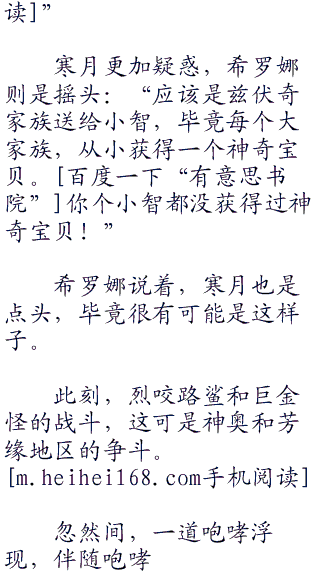 读]”
寒月更加疑惑，希罗娜
则是摇头：“应该是兹伏奇
家族送给小智，毕竟每个大
家族，从小获得一个神奇宝
贝。[百度一下“有意思书
院”]你个小智都没获得过神
奇宝贝！”
希罗娜说着，寒月也是
点头，毕竟很有可能是这样
子。
此刻，烈咬路鲨和巨金
怪的战斗，这可是神奥和芳
缘地区的争斗。
[m.heihei168.com手机阅读]
忽然间，一道咆哮浮
现，伴随咆哮